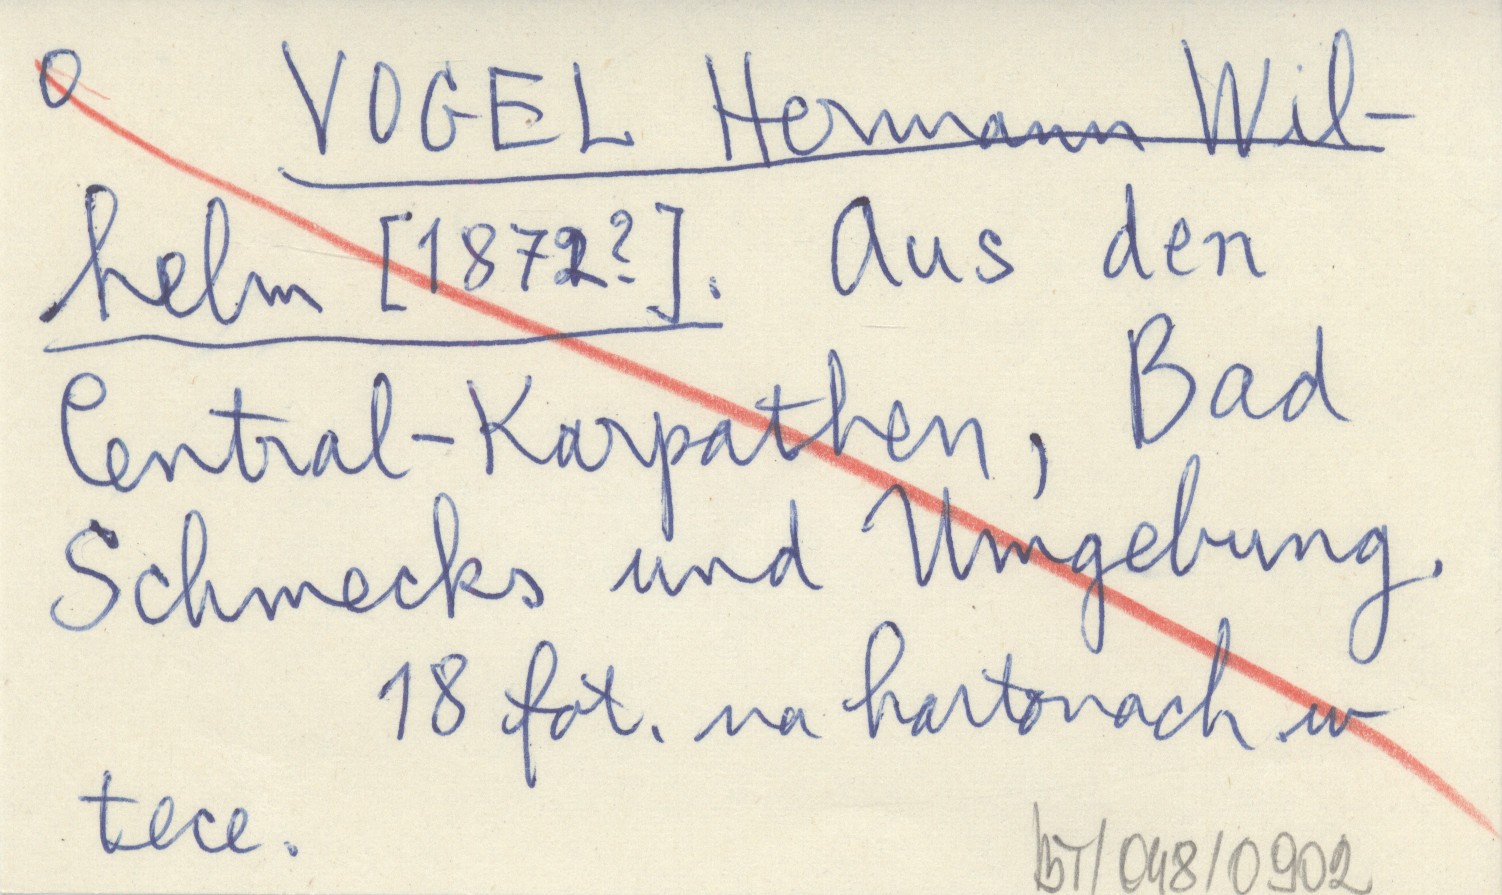 O VOGEL Hermann Wil-
helm [1872?]. Aus den
Central-Karpathen, Bad
Schmecks und Umgebung.
18 fot. na kartonach w
tece.
bT/048/0902